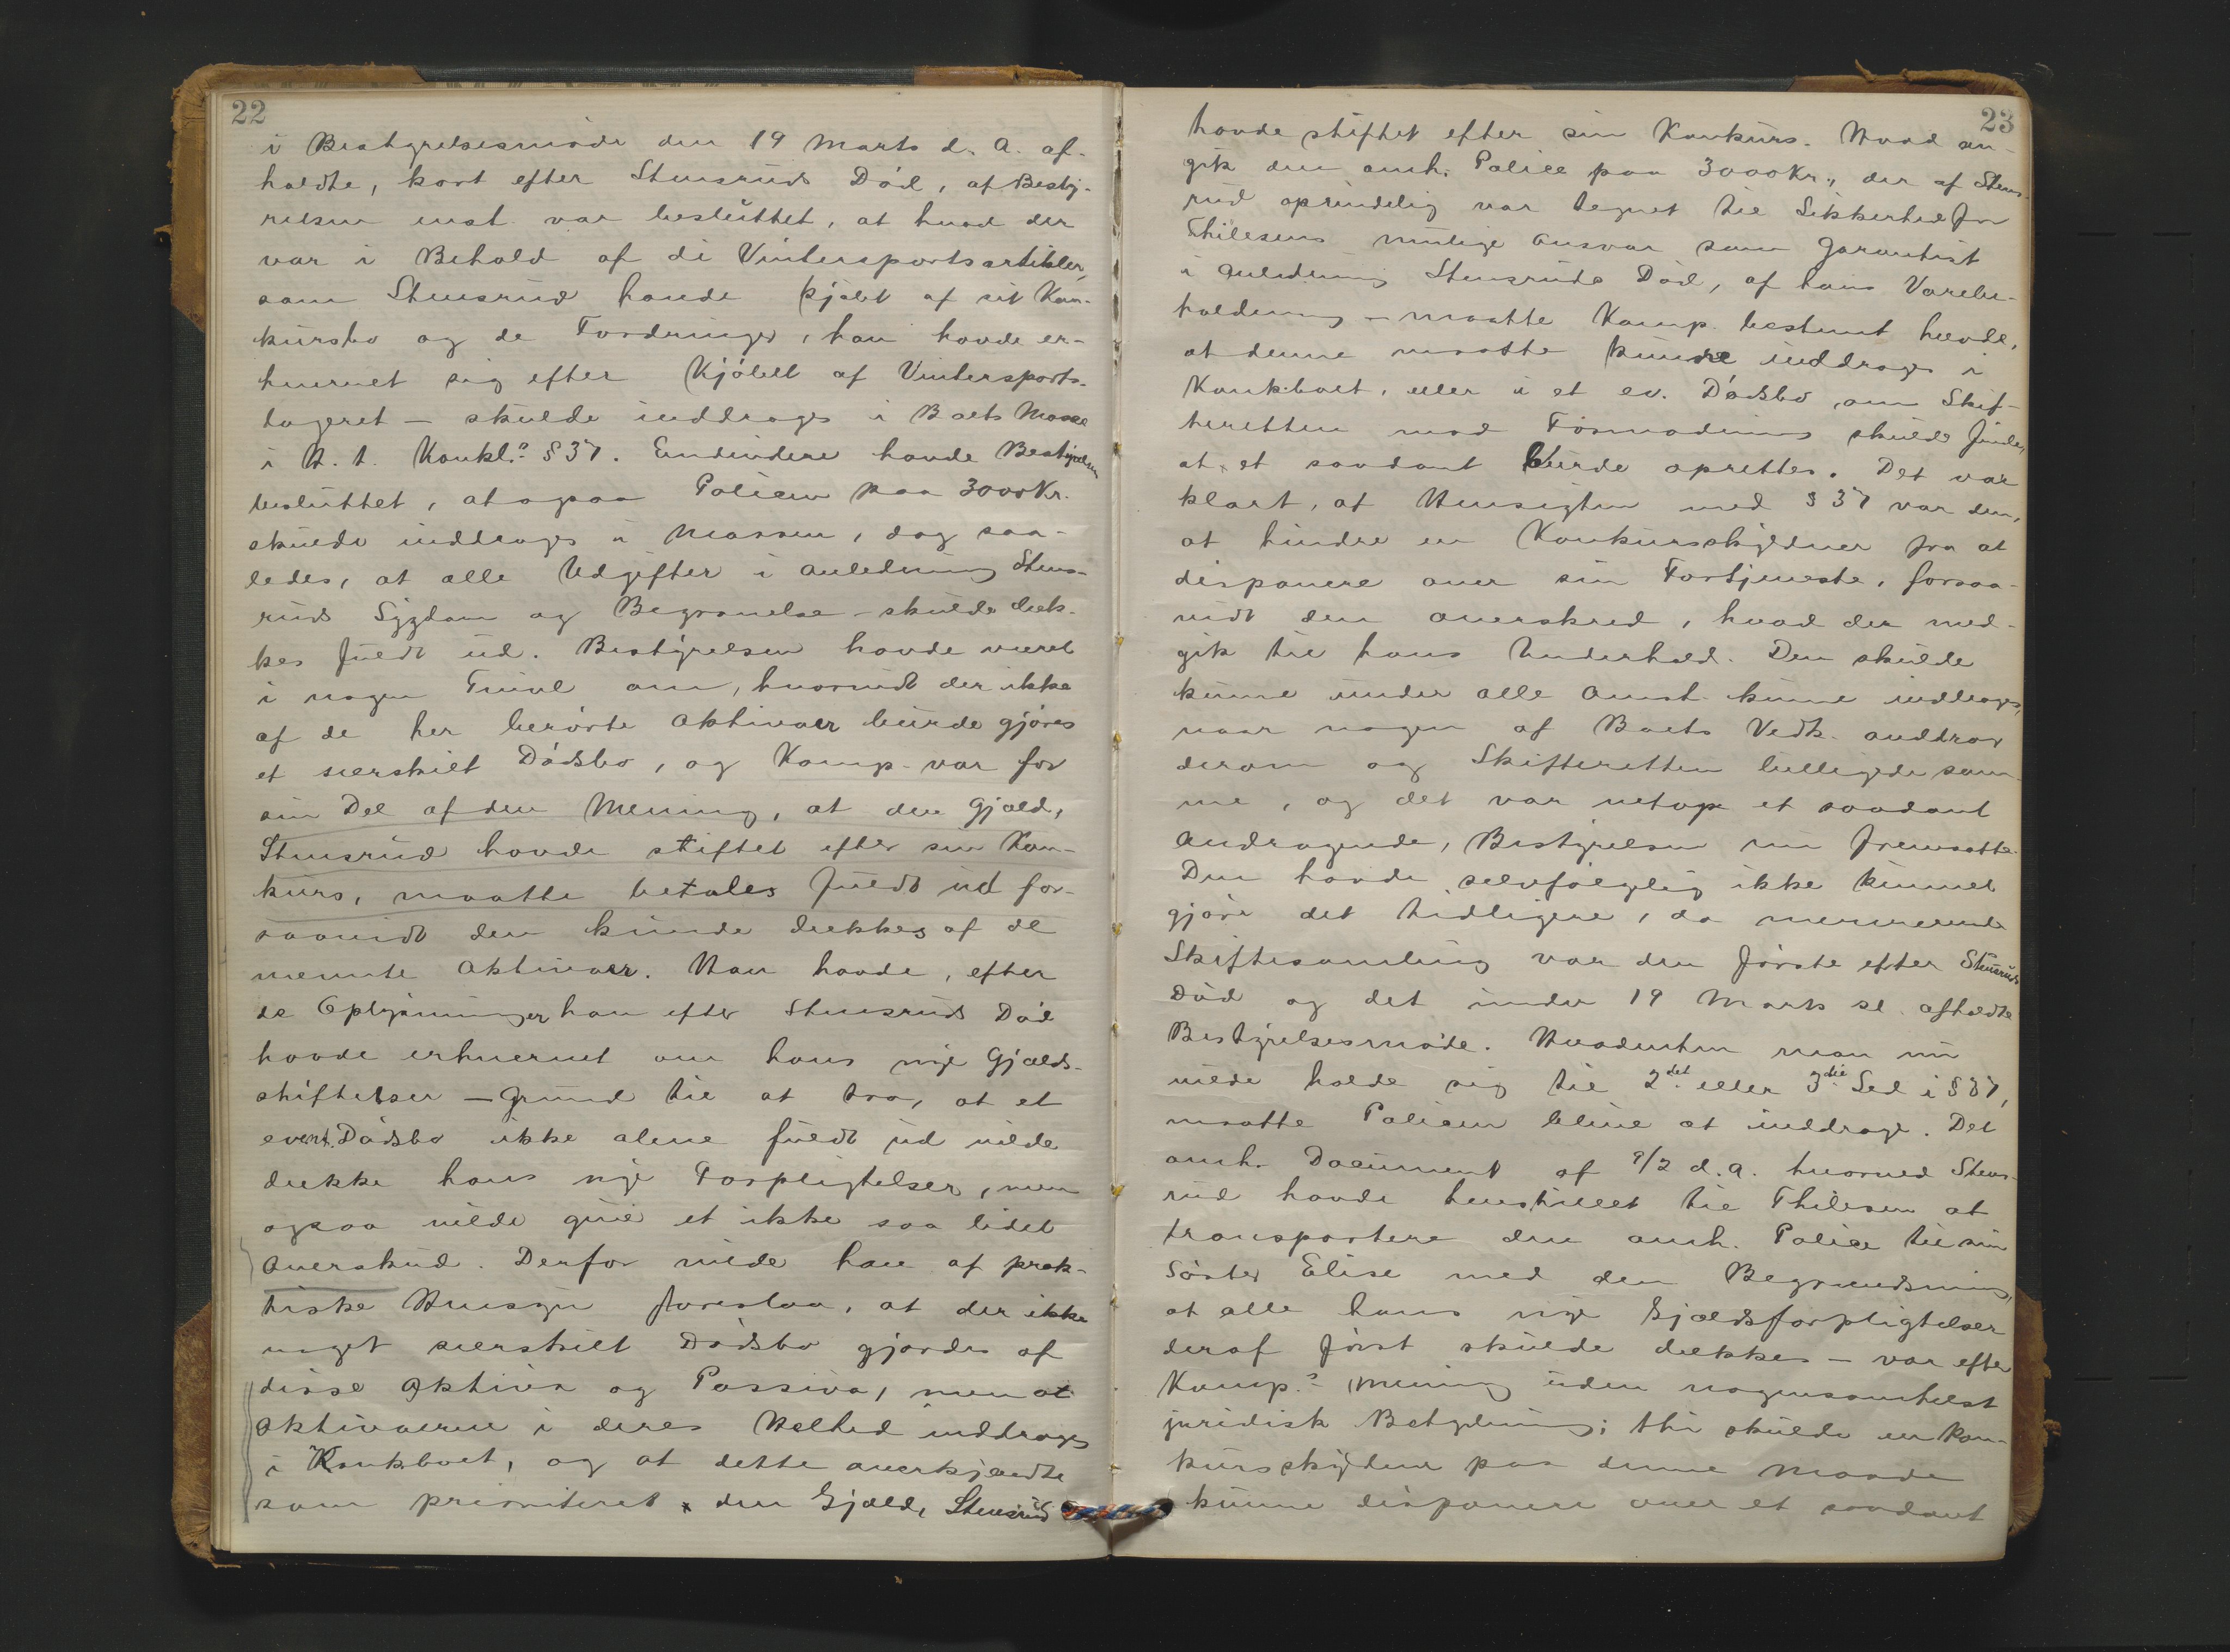 22
i Bestyrelsesmøde den 19 Marts d. A. af-
holdte, kort efter Stensruds Død, af Besty-
relsen enst. var besluttet, at hvad der
var i Behold af de Vintersportsartikler,
som Stensrud havde kjøbt af sit Kon-
kursbo og de Fordringer, han havde er-
hvervet sig efter Kjøbet af Vintersports-
lageret – skulde inddrages i Boets Masse
i H. t. Konkl.s § 37. Endvidere havde Bestyrelsen
besluttet, at ogsaa Policen paa 3000 Kr.
skulde inddrages i Massen, dog saa-
ledes, at alle Udgifter i Anledning Stens-
ruds Sygdom og Begravelse – skulde dæk-
kes fuldt ud. Bestyrelsen havde været
i nogen Tvivl om, hvorvidt der ikke
af de her berørte Aktivaer burde gjøres
et særskilt Dødsbo, og Komp. var for
sin Del af den Mening, at den Gjæld,
Stensrud havde stiftet efter sin Kon-
kurs, maatte betales fuldt ud for-
saavidt den kunde dækkes af de
nævnte Aktivaer. Han havde, efter
de Oplysninger han efter Stensruds Død
havde erhvervet om hans nye Gjælds-
stiftelser – Grund til at tro, at et
event. Dødsbo ikke alene fuldt ud vilde
dække hans nye Forpligtelser, men
ogsaa vilde give et ikke saa lidet
Overskud. Derfor vilde han af prak-
tiske Hensyn foreslaa, at der ikke
noget særskilt Dødsbo gjordes af
disse Aktiva og Passiva, men at
Aktivaerne i deres Helhed inddrages
i Konkboet, og at dette anerkjendte
som prioriteret den Gjæld, Stensrud
23
havde stiftet efter sin Konkurs. Hvad an-
gik den omh. Police paa 3000 Kr., der af Stens-
rud oprindelig var tegnet til Sikkerhed for
Thilesens mulige Ansvar som Garantist
i Anledning Stensruds Død, af hans Varebe-
holdning – maatte Komp. bestemt hævde,
at denne maatte kunde inddrages i
Konkboet, eller i et ev. Dødsbo, om Skif-
teretten mod Formodning skulde finde,
at et saadant burde oprettes. Det var
klart, at Hensigten med § 37 var den,
at hindre en Konkursskyldner fra at
disponere over sin Fortjeneste, forsaa-
vidt den overskred, hvad der med-
gik til hans Underhold. Den skulde
kunne under alle Omst. kunne inddrages,
naar nogen af Boets Vedk. anddrog
derom og Skifteretten billigede sam-
me, og det var netop et saadant
Andragende, Bestyrelsen nu fremsatte.
Den havde selvfølgelig ikke kunnet
gjøre det tidligere, da nærværende
Skiftesamling var den første efter Stensruds
Død og det under 19 Marts sl. afholdte
Bestyrelsesmøde. Hvadenten man nu
vilde holde sig til 2det eller 3die Led i § 37,
maatte Policen blive at inddrage. Det
omh. Document af 9/2 d. A. hvorved Stens-
rud havde henstillet til Thilesen at
transportere den omh. Police til sin
Søster Elise med den Begrundning,
at alle hans nye Gjældsforpligtelser
deraf først skulde dækkes – var efter
Komp.s Mening uden nogensomhelst
juridisk Betydning; thi skulde en Kon-
kursskyldner paa denne Maade
kunne disponere over et saadant